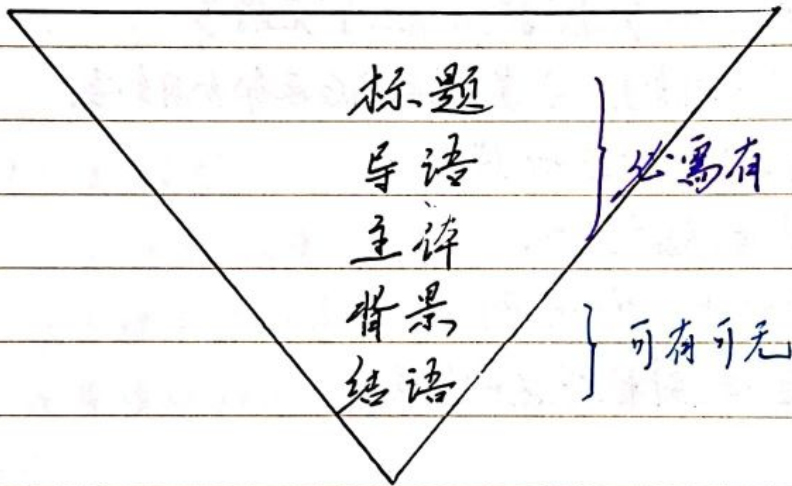 标题
导语
主体
背景
结语
必需有
可有可无